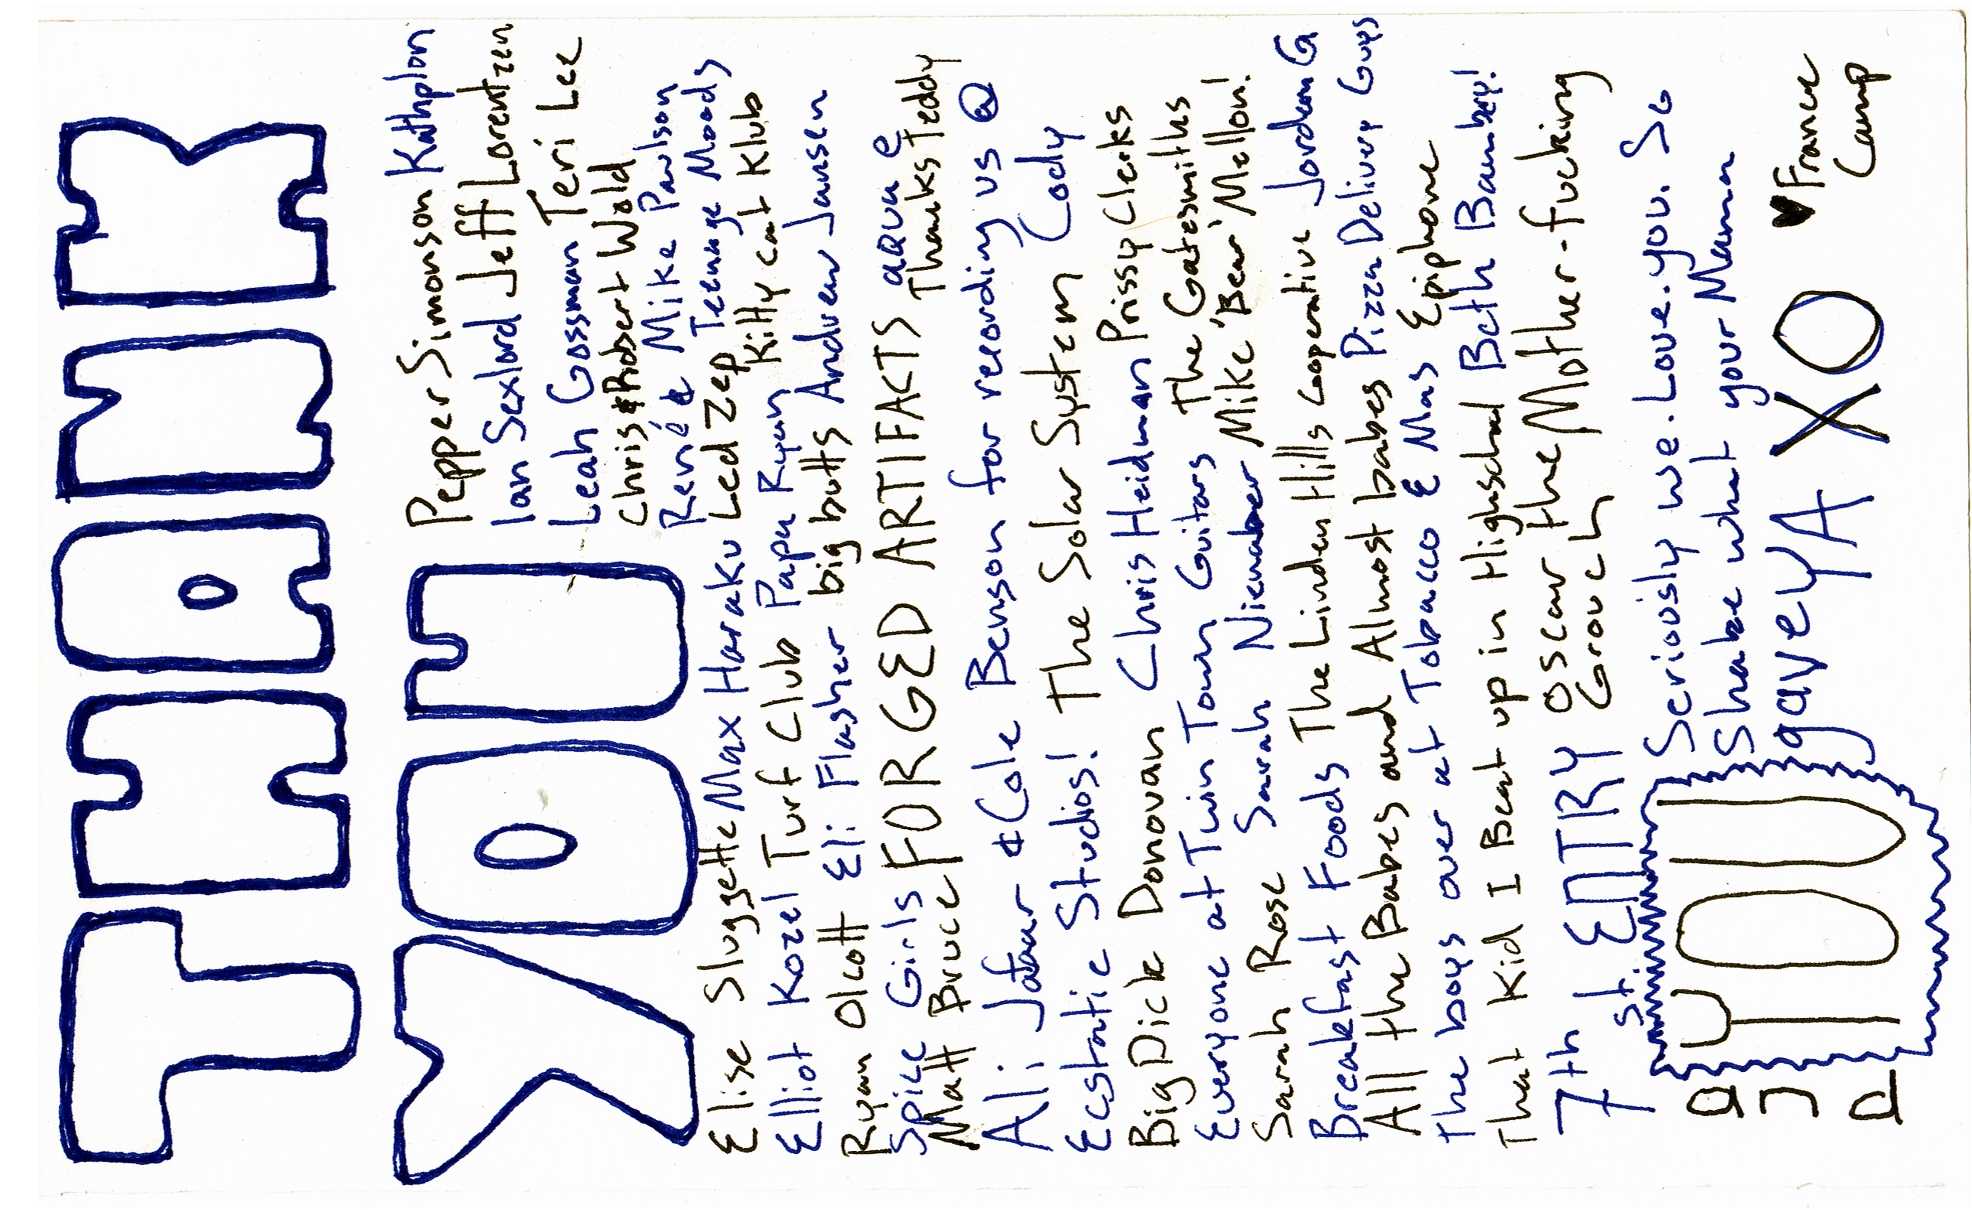 THANK
YOU
Pepper Simonson Kathplon
Ian Sexlord Jeff Lorentzen
Leah Gossman Teri Lee
Chris & Robert Wold
René & Mike Paulson
Elise Sluggette Max Haraku Led Zep Teenage Moods
Elliot Kozel Turf Club Papa Ryan Kitty cat Klub
Ryan Olcott Eli Flasher big butts Andrew Jansen
Spice Girls FORGED ARTIFACTS
Matt Bruce Thanks Teddy
Ali Jafaar & Cole Benson for recording us @
Ecstatic Studios! The Solar System Cody
Big Dick Donovan Chris Heidman Prissy Clerks
Everyone at Twin Town Guitars The Gatesmiths
Sarah Rose Sarah Nienaber Mike 'Bear' Mellon!
Breakfast Foods The Linden Hills cooperative Jordan G
All the Babes and Almost babes Pizza Delivery Guys
The boys over at Tobacco & Mas Epiphone
That Kid I Beat up in Highschool Beth Bambery!
7th st. ENTRY Oscar the Mother-Fucking
Grouch
Seriously we. Love. you. So
Shake what your Mama
and YOU gaveYA XO ♥ France
Camp